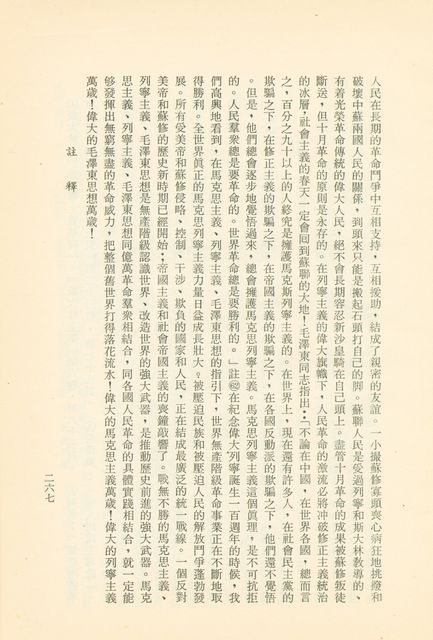 人民在長期的革命鬥爭中互相支持，互相援助，結成了親密的友誼。一小撮蘇修寡頭喪心病狂地挑撥和
破壞中蘇兩國人民的關係，到頭來只能是搬起石頭打自己的脚。蘇聯人民是受過列寧和斯大林教導的、
有着光榮革命傳統的偉大人民，絕不會長期容忍新沙皇騎在自己頭上。盡管十月革命的成果被蘇修叛徒
斷送，但十月革命的原則是永存的。在列寧主義的偉大旗幟下，人民革命的激流必將冲破修正主義統治
的冰層，社會主義的春天一定會回到蘇聯的大地！毛澤東同志指出：「不論在中國，在世界各國，總而言
之，百分之九十以上的人終究是擁護馬克斯列寧主義的。在世界上，現在還有許多人，在社會民主黨的
欺騙之下，在修正主義的欺騙之下，在帝國主義的欺騙之下，在各國反動派的欺騙之下，他們還不覺悟
。但是，他們總會逐步地覺悟過來，總會擁護馬克思列寧主義。馬克思列寧主義這個眞理，是不可抗拒
的。人民羣衆總是要革命的。世界革命總是要勝利的。」註㊷在紀念偉大列寧誕生一百週年的時候，我
們高興地看到，在馬克思主義、列寧主義、毛澤東思想的指引下，世界無產階級革命事業正在不斷地取
得勝利。全世界眞正的馬克思列寧主義力量日益成長壯大。被壓迫民族和被壓迫人民的解放鬥爭蓬勃發
展。所有受美帝和蘇修侵略、控制、干涉、欺負的國家和人民，正在結成最廣泛的統一戰線。一個反對
美帝和蘇修的歷史新時期已經開始；帝國主義和社會帝國主義的喪鐘敲響了。戰無不勝的馬克思主義、
列寧主義、毛澤東思想是無產階級認識世界、改造世界的強大武器，是推動歷史前進的強大武器。馬克
思主義、列寧主義、毛澤東思想同億萬革命羣衆相結合，同各國人民革命的具體實踐相結合，就一定能
够發揮出無窮無盡的革命威力，把整個舊世界打得落花流水！偉大的馬克思主義萬歲！偉大的列寧主義
萬歲！偉大的毛澤東思想萬歲！
註　釋
二六七